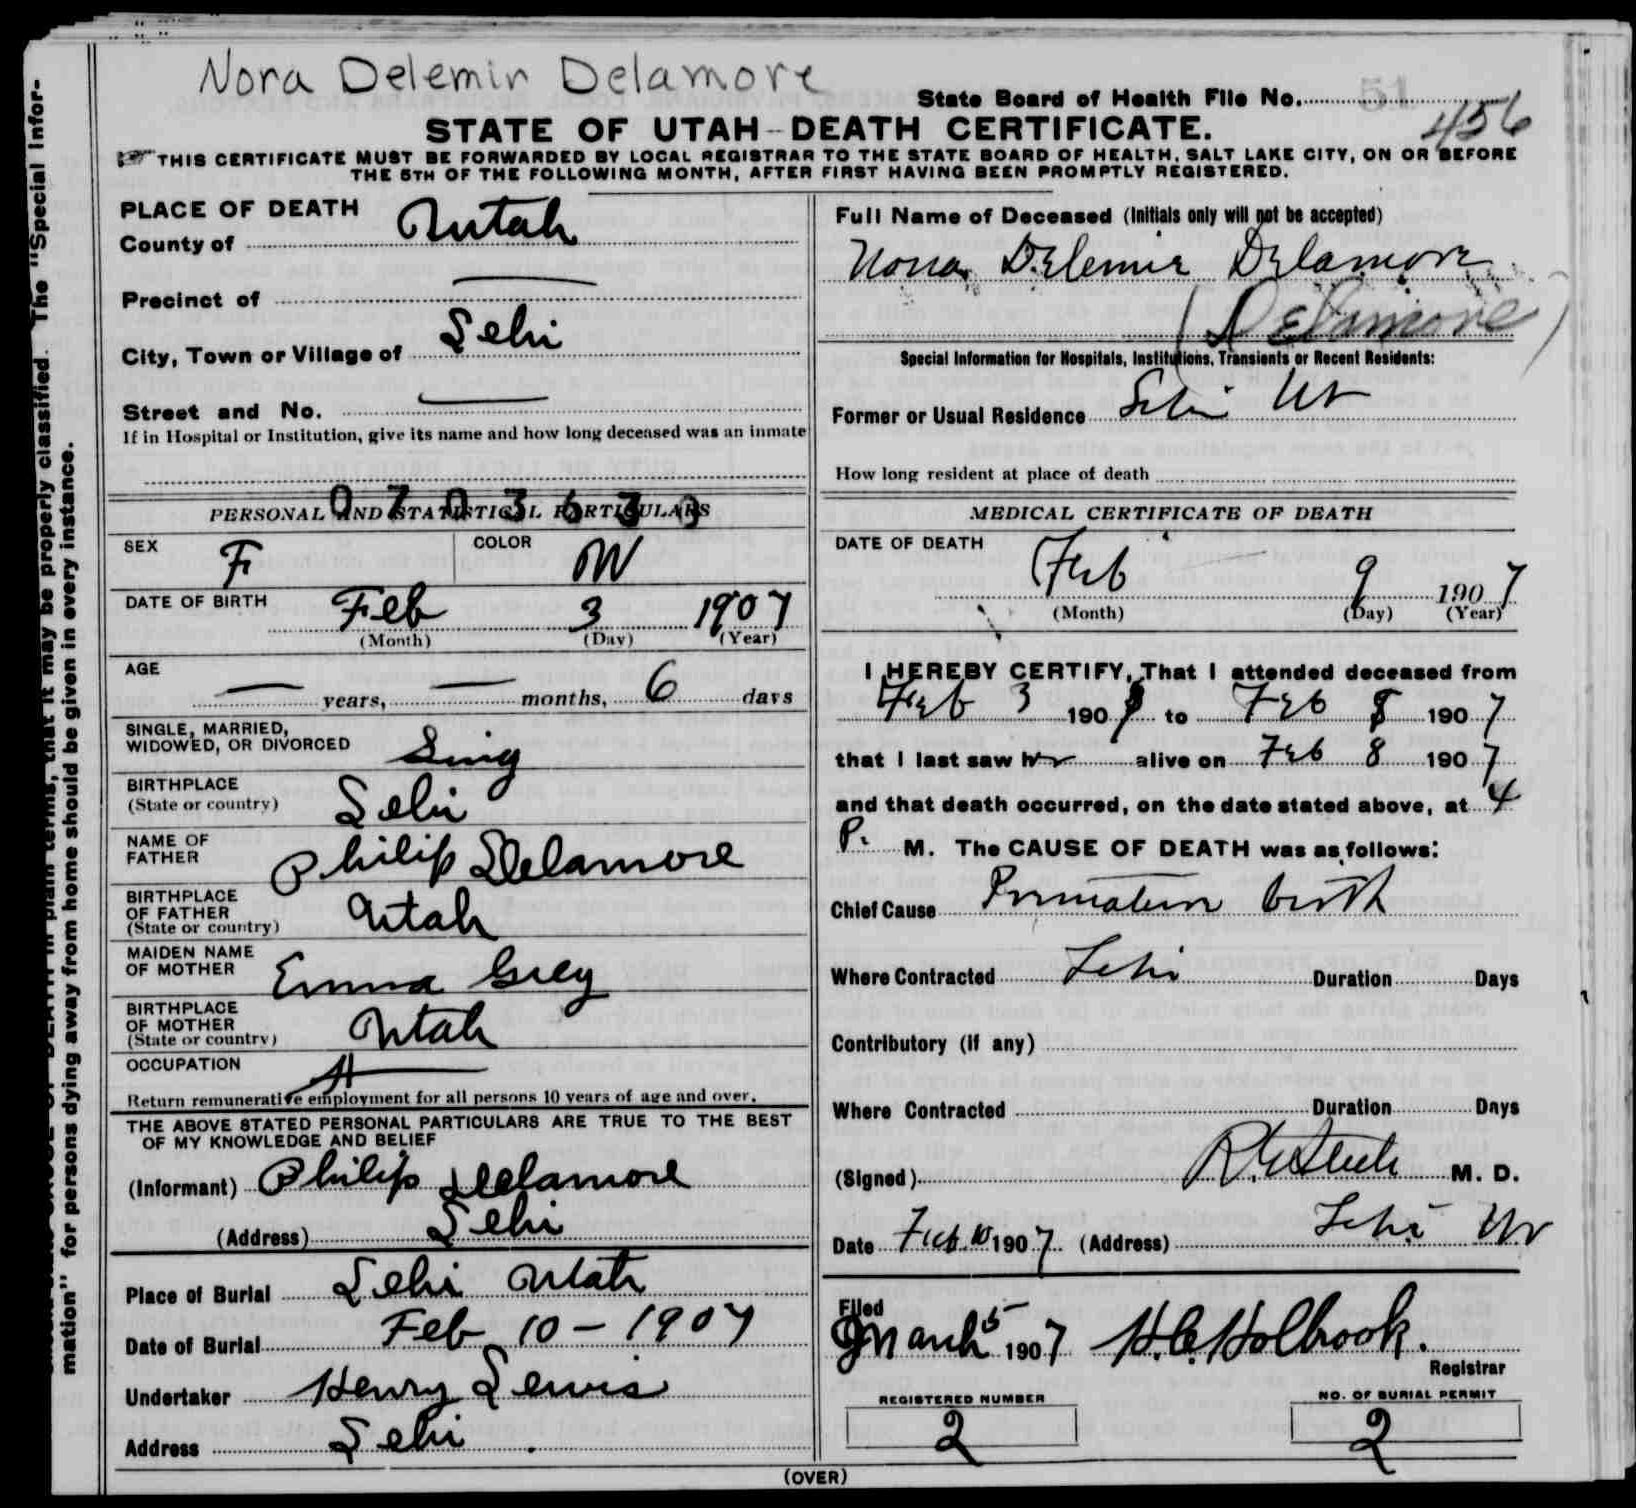 Nora Delemir Delamore
State Board of Health File No. 51
456
STATE OF UTAH--DEATH CERTIFICATE.
THIS CERTIFICATE MUST BE FORWARDED BY LOCAL REGISTRAR TO THE STATE BOARD OF HEALTH, SALT LAKE CITY, ON OR BEFORE
THE 5TH OF THE FOLLOWING MONTH, AFTER FIRST HAVING BEEN PROMPTLY REGISTERED.
PLACE OF DEATH
County of Utah
Precinct of —
City, Town or Village of Lehi
Street and No. —
If in Hospital or Institution, give its name and how long deceased was an inmate
PERSONAL AND STATISTICAL PARTICULARS
SEX F COLOR W
DATE OF BIRTH Feb 3 1907
(Month) (Day) (Year)
AGE — years, — months, 6 days
SINGLE, MARRIED,
WIDOWED, OR DIVORCED Sing
BIRTHPLACE
(State or country) Lehi
NAME OF
FATHER Philip Delamore
BIRTHPLACE
OF FATHER
(State or country) Utah
MAIDEN NAME
OF MOTHER Emma Grey
BIRTHPLACE
OF MOTHER
(State or country) Utah
OCCUPATION
Return remunerative employment for all persons 10 years of age and over.
THE ABOVE STATED PERSONAL PARTICULARS ARE TRUE TO THE BEST
OF MY KNOWLEDGE AND BELIEF
(Informant) Philip Delamore
(Address) Lehi
Place of Burial Lehi Utah
Date of Burial Feb 10 - 1907
Undertaker Henry Lewis
Address Lehi
Full Name of Deceased (Initials only will not be accepted)
Nora Delemir Delamore
(Delamore)
Special Information for Hospitals, Institutions, Transients or Recent Residents:
Former or Usual Residence Lehi Ut
How long resident at place of death
MEDICAL CERTIFICATE OF DEATH
DATE OF DEATH Feb 9 1907
(Month) (Day) (Year)
I HEREBY CERTIFY, That I attended deceased from
Feb 3 1907 to Feb 8 1907
that I last saw hr alive on Feb 8 1907
and that death occurred, on the date stated above, at 4
P. M. The CAUSE OF DEATH was as follows:
Chief Cause Premature birth
Where Contracted Lehi Duration Days
Contributory (if any)
Where Contracted Duration Days
(Signed) M. D.
Date Feb. 10 1907 (Address) Lehi Ut
Filed
March 5 1907 H.C. Holbrook.
Registrar
REGISTERED NUMBER
2
NO. OF BURIAL PERMIT
2
(OVER)
The "Special Infor-
mation" for persons dying away from home should be given in every instance.